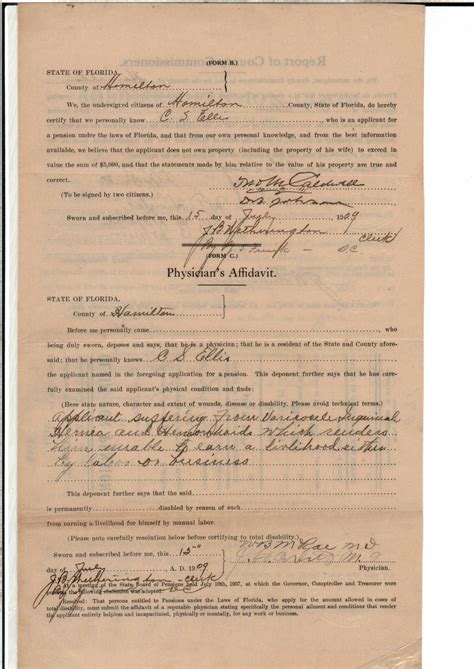 (FORM B.)
STATE OF FLORIDA,
County of Hamilton
We, the undersigned citizens of Hamilton County, State of Florida, do hereby
certify that we personally know C S Ellis who is an applicant for
a pension under the laws of Florida, and that from our own personal knowledge, and from the best information
available, we believe that the applicant does not own property (including the property of his wife) to exceed in
value the sum of $5,000, and that the statements made by him relative to the value of his property are true and
correct.
Caldwell
(To be signed by two citizens.)
Sworn and subscribed before me, this 15 day of July 1909
J B Witherington
Clerk
By DC
(FORM C.)
Physician's Affidavit.
STATE OF FLORIDA,
County of Hamilton
Before me personally came , who
being duly sworn, deposes and says, that he is a physician; that he is a resident of the State and County afore-
said; that he personally knows C S Ellis
the applicant named in the foregoing application for a pension. This deponent further says that he has care-
fully examined the said applicant's physical condition and finds:
(Here state nature, character and extent of wounds, disease or disability. Please avoid technical terms.)
applicant suffering from Varicocele Inguinal
Hernia and Hemorrhoids which renders
him unable to earn a livlihood either
by labor or business
This deponent further says that the said
is permanently disabled by reason of such
from earning a livelihood for himself by manual labor.
(Please note carefully resolution below before certifying to total disability.)
Sworn and subscribed before me, this 15
day of July A. D. 1909
M.D.
Physician.
J B Witherington clerk
DC
At a meeting of the State Board of Pensions held July 19th, 1907, at which the Governor, Comptroller and Treasurer were
present, the following resolution was adopted:
Resolved: That persons entitled to Pensions under the Laws of Florida, who apply for the amount allowed in cases of
total disability, must submit the affidavit of a reputable physician stating specifically the personal ailment and condition that render
the applicant entirely helpless and incapacitated, physically or mentally, for work or any vocation or business.